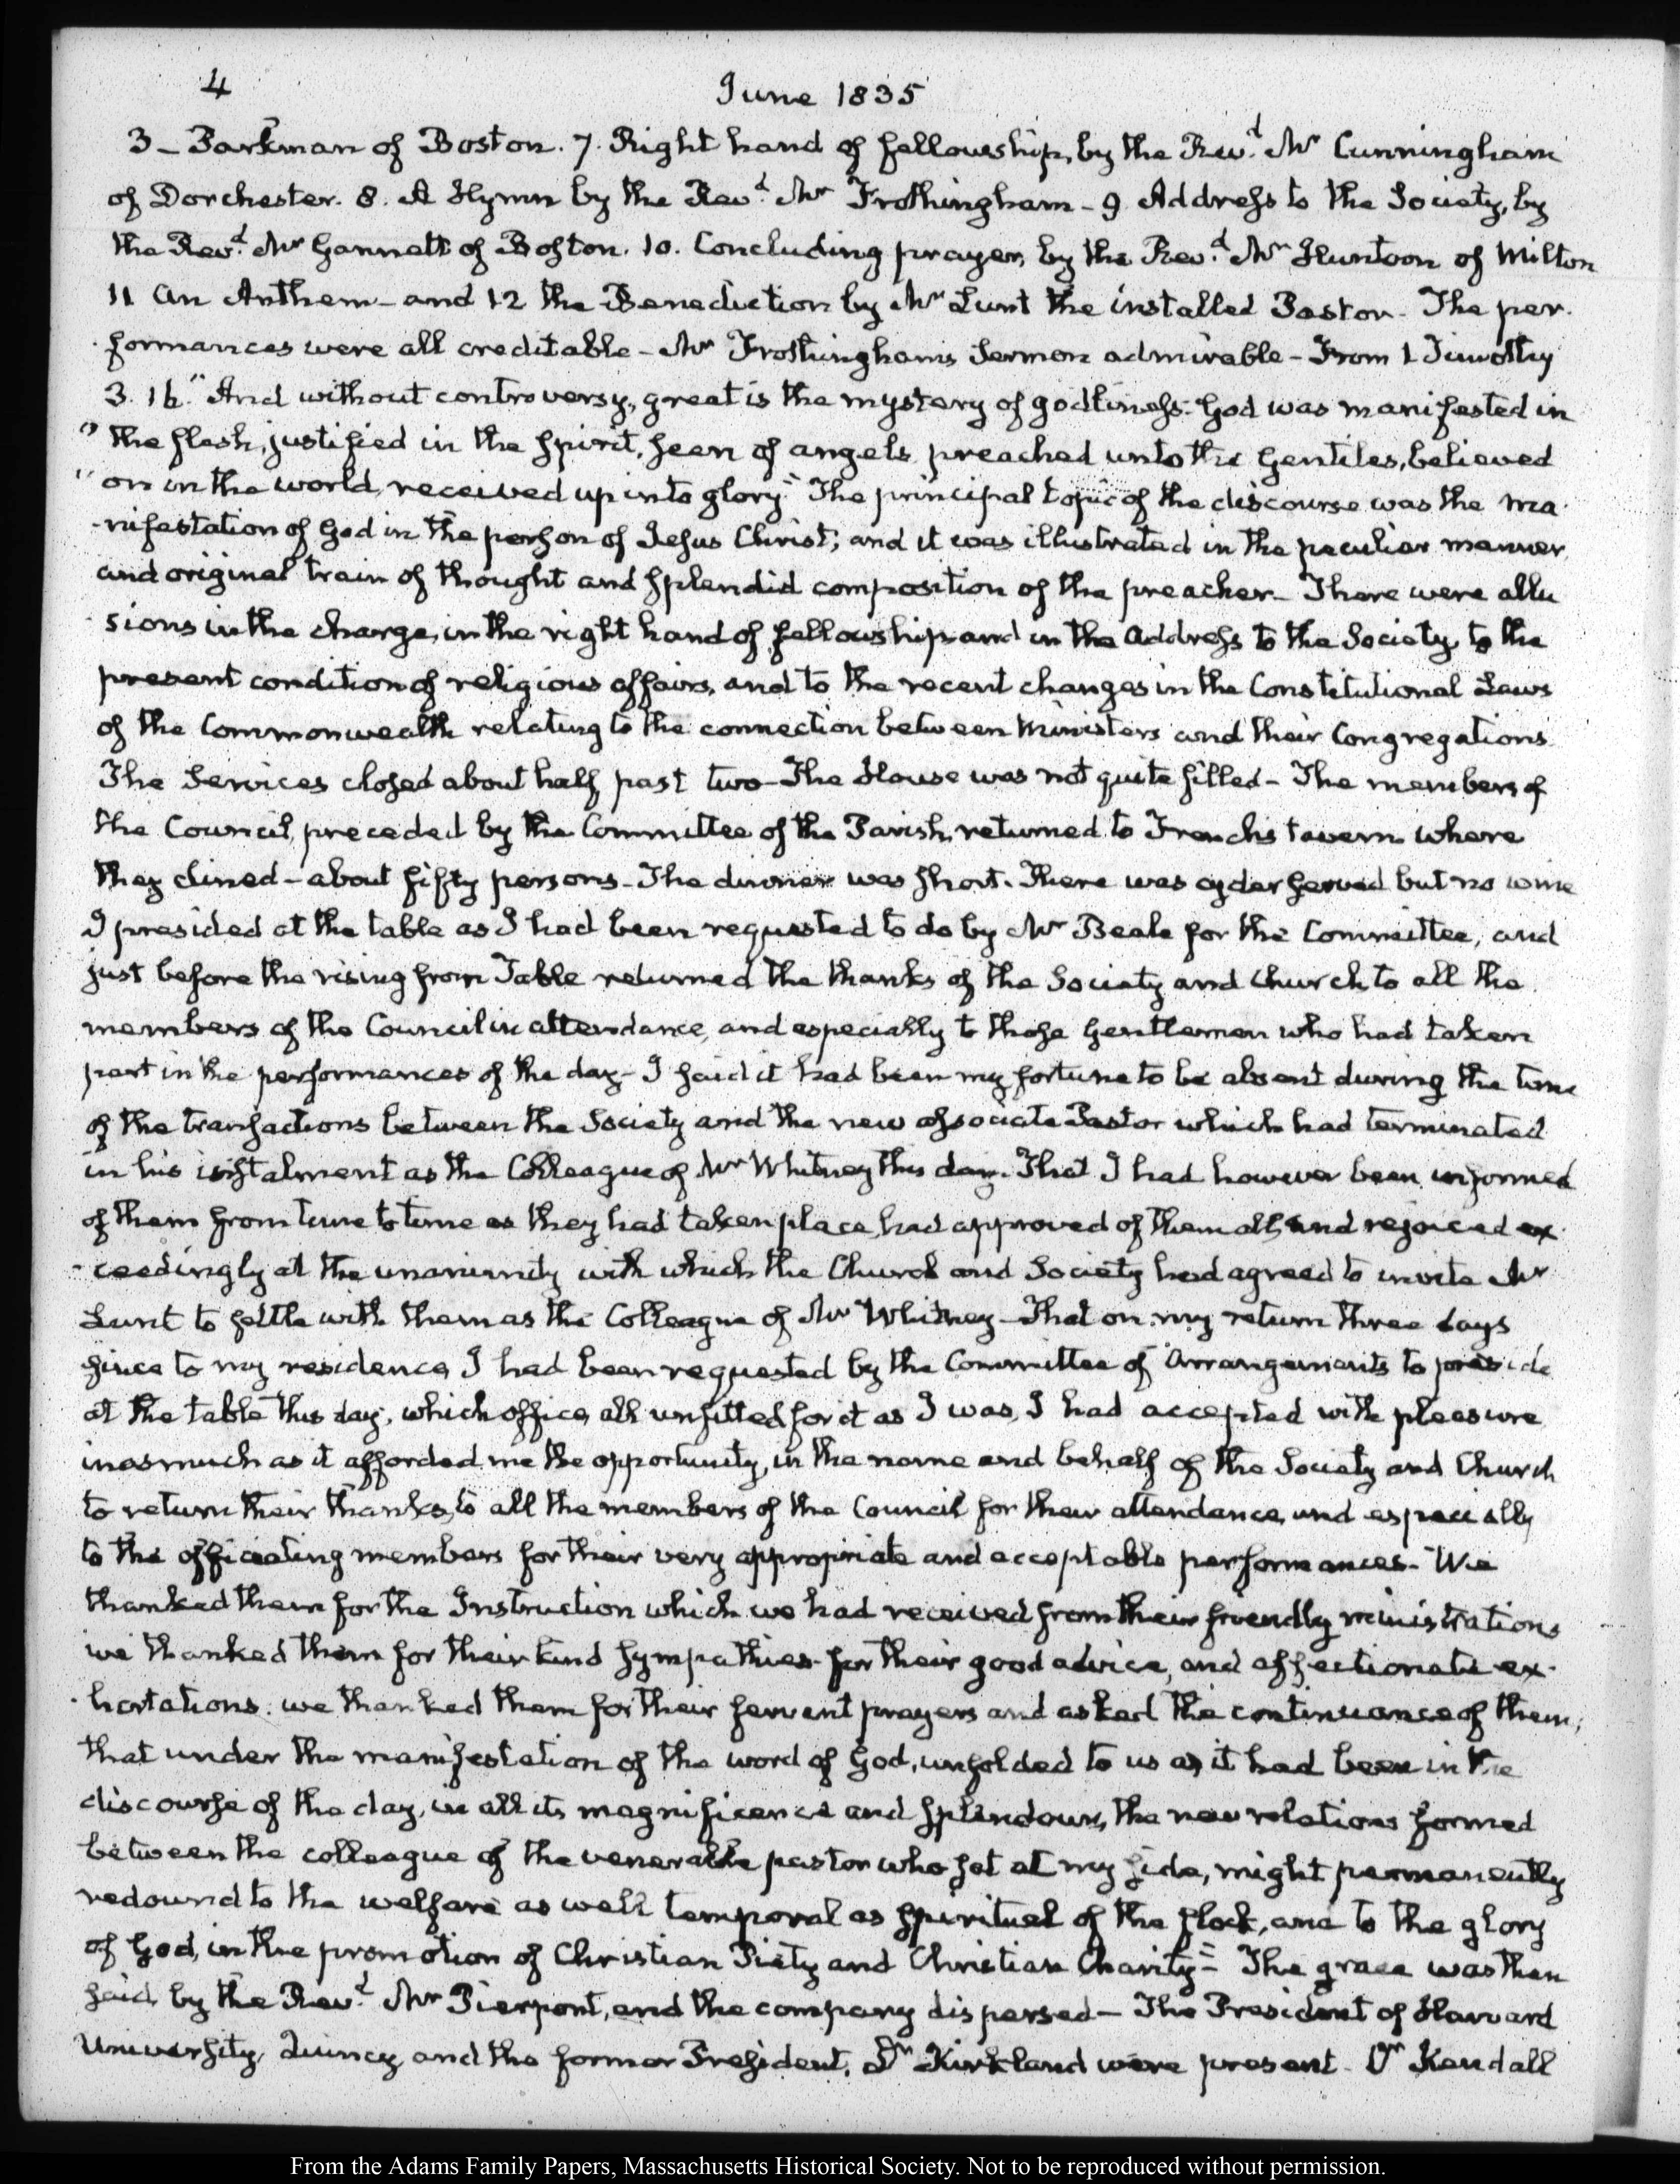 4 June 1835
3 - Parkman of Boston. 7. Right hand of fellowship, by the Revd. Mr Cunningham
of Dorchester. 8. A Hymn by the Revd. Mr Frothingham - 9 Address to the Society, by
the Revd. Mr Gannett of Boston. 10. Concluding prayer, by the Revd. Mr Huntoon of Milton
11 An Anthem - and 12 the Benediction by Mr Lunt the installed Pastor - The per-
-formances were all creditable - Mr Frothinghams Sermon admirable - From 1 Timothy
3. 16. "And without controversy, great is the mystery of godliness. God was manifested in
" the flesh, justified in the Spirit, seen of angels, preached unto the Gentiles, believed
" on in the world, received up into glory." The principal topic of the discourse was the ma-
-nifestation of God in the person of Jesus Christ; and it was illustrated in the peculiar manner,
and original train of thought and splendid composition of the preacher - There were allu
-sions in the charge, in the right hand of fellowship and in the Address to the Society, to the
present condition of religious affairs, and to the recent changes in the Constitutional Laws
of the Commonwealth relating to the connection between Ministers and their Congregations.
The Services closed about half past two - The House was not quite filled - The members of
the Council, preceded by the Committee of the Parish, returned to Frenchs tavern where
they dined - about fifty persons - The dinner was short. There was cyder served but no wine
I presided at the table as I had been requested to do by Mr Beale for the Committee, and
just before the rising from Table returned the thanks of the Society and Church, to all the
members of the Council in attendance, and especially to those Gentlemen who had taken
part in the performances of the day - I said it had been my fortune to be absent during the time
of the transactions between the Society and the new associate Pastor which had terminated
in his instalment as the Colleague of Mr Whitney this day. That I had however been informed
of them from time to time as they had taken place, had approved of them all, and rejoiced ex-
-ceedingly at the unanimity with which the Church and Society had agreed to invite Mr
Lunt to settle with them as the Colleague of Mr Whitney - That on my return three days
since to my residence, I had been requested by the Committee of Arrangements to preside
at the table this day, which office, all unfitted for it as I was, I had accepted with pleasure
inasmuch as it afforded me the opportunity, in the name and behalf of the Society and Church
to return their thanks, to all the members of the Council for their attendance, and especially
to the officiating members for their very appropriate and acceptable performances - We
thanked them for the Instruction which we had received from their friendly ministrations
we thanked them for their kind sympathies - for their good advice, and affectionate ex-
-hortations: we thanked them for their fervent prayers and asked the continuance of them;
that under the manifestation of the word of God, unfolded to us as it had been in the
discourse of the day, in all its magnificence and splendour, the new relations formed
between the colleague of the venerable pastor who sat at my side, might permanently
redound to the welfare as well temporal as spiritual of the flock, and to the glory
of God, in the promotion of Christian Piety and Christian Charity = The grace was then
said by the Revd. Mr Pierpont, and the company dispersed - The President of Harvard
University, Quincy, and the former President, Dr Kirkland were present - Dr Kendall
From the Adams Family Papers, Massachusetts Historical Society. Not to be reproduced without permission.